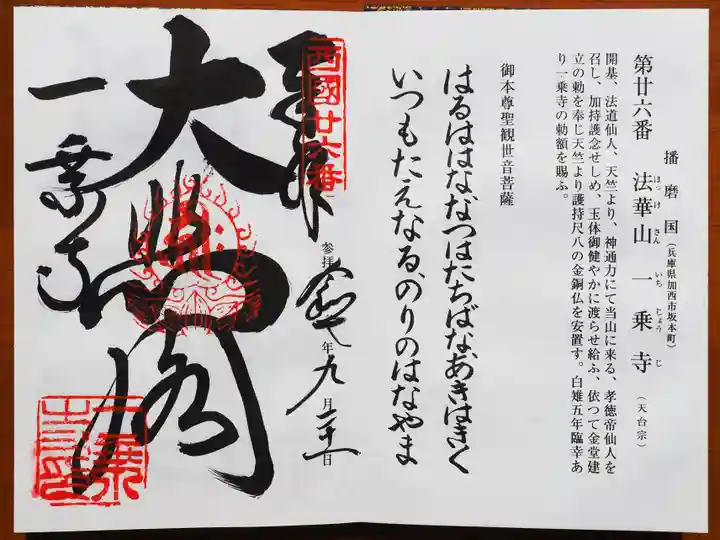 播磨国(兵庫県加西市坂本町)
第廿六番 法華山一乗寺(天台宗)
ほっけさんいちじょうじ
開基、法道仙人、天竺より、神通力にて当山に来る、孝徳帝仙人を
召し、加持護念せしめ、玉体御健やかに渡らせ給ふ、依つて金堂建
立の勅を奉じ天竺より護持尺八の金銅仏を安置す。白雉五年臨幸あ
り一乗寺の勅額を賜ふ。
御本尊聖観世音菩薩
はるははななつはたちばなあきはきく
いつもたえなるのりのはなやま
奉拝
西國廿六番
参拝 令七年九月二十一日
大悲閣
一乗寺